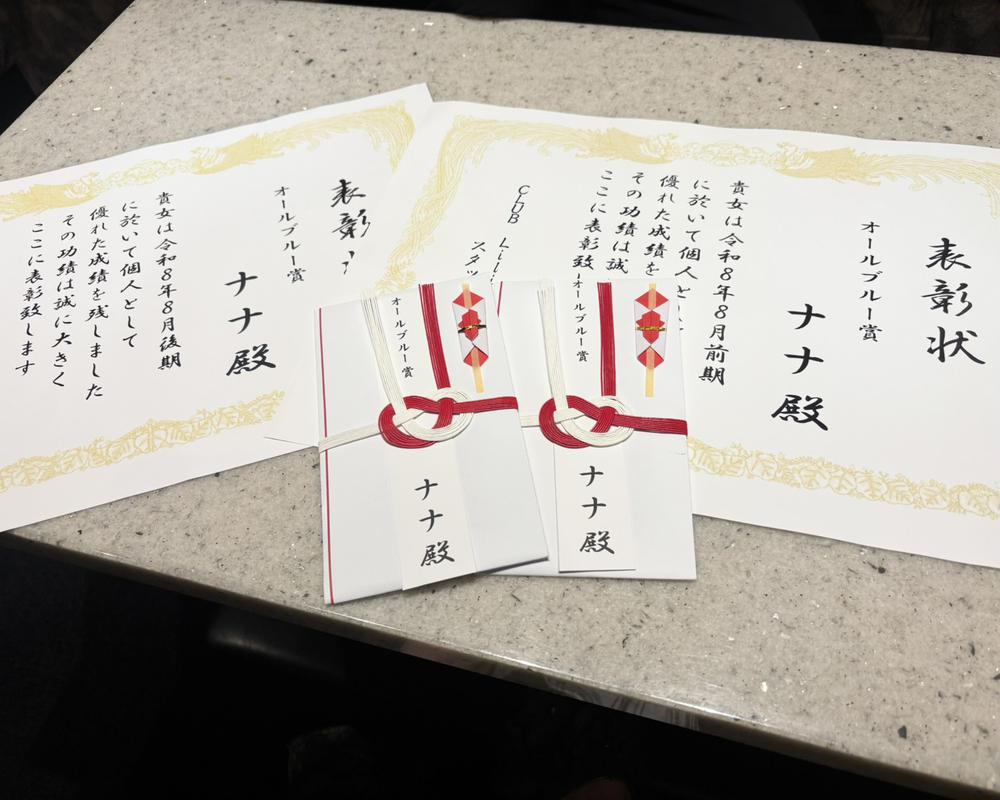 表彰状
オールブルー賞
ナナ殿
貴女は令和8年8月前期
に於いて個人と
優れた成績を
その功績は誠
ここに表彰致
CLUB
スタッ
表彰
オールブルー賞
ナナ殿
貴女は令和8年8月後期
に於いて個人として
優れた成績を残しました
その功績は誠に大きく
ここに表彰致します
オールブルー賞
ナナ殿
オールブルー賞
ナナ殿